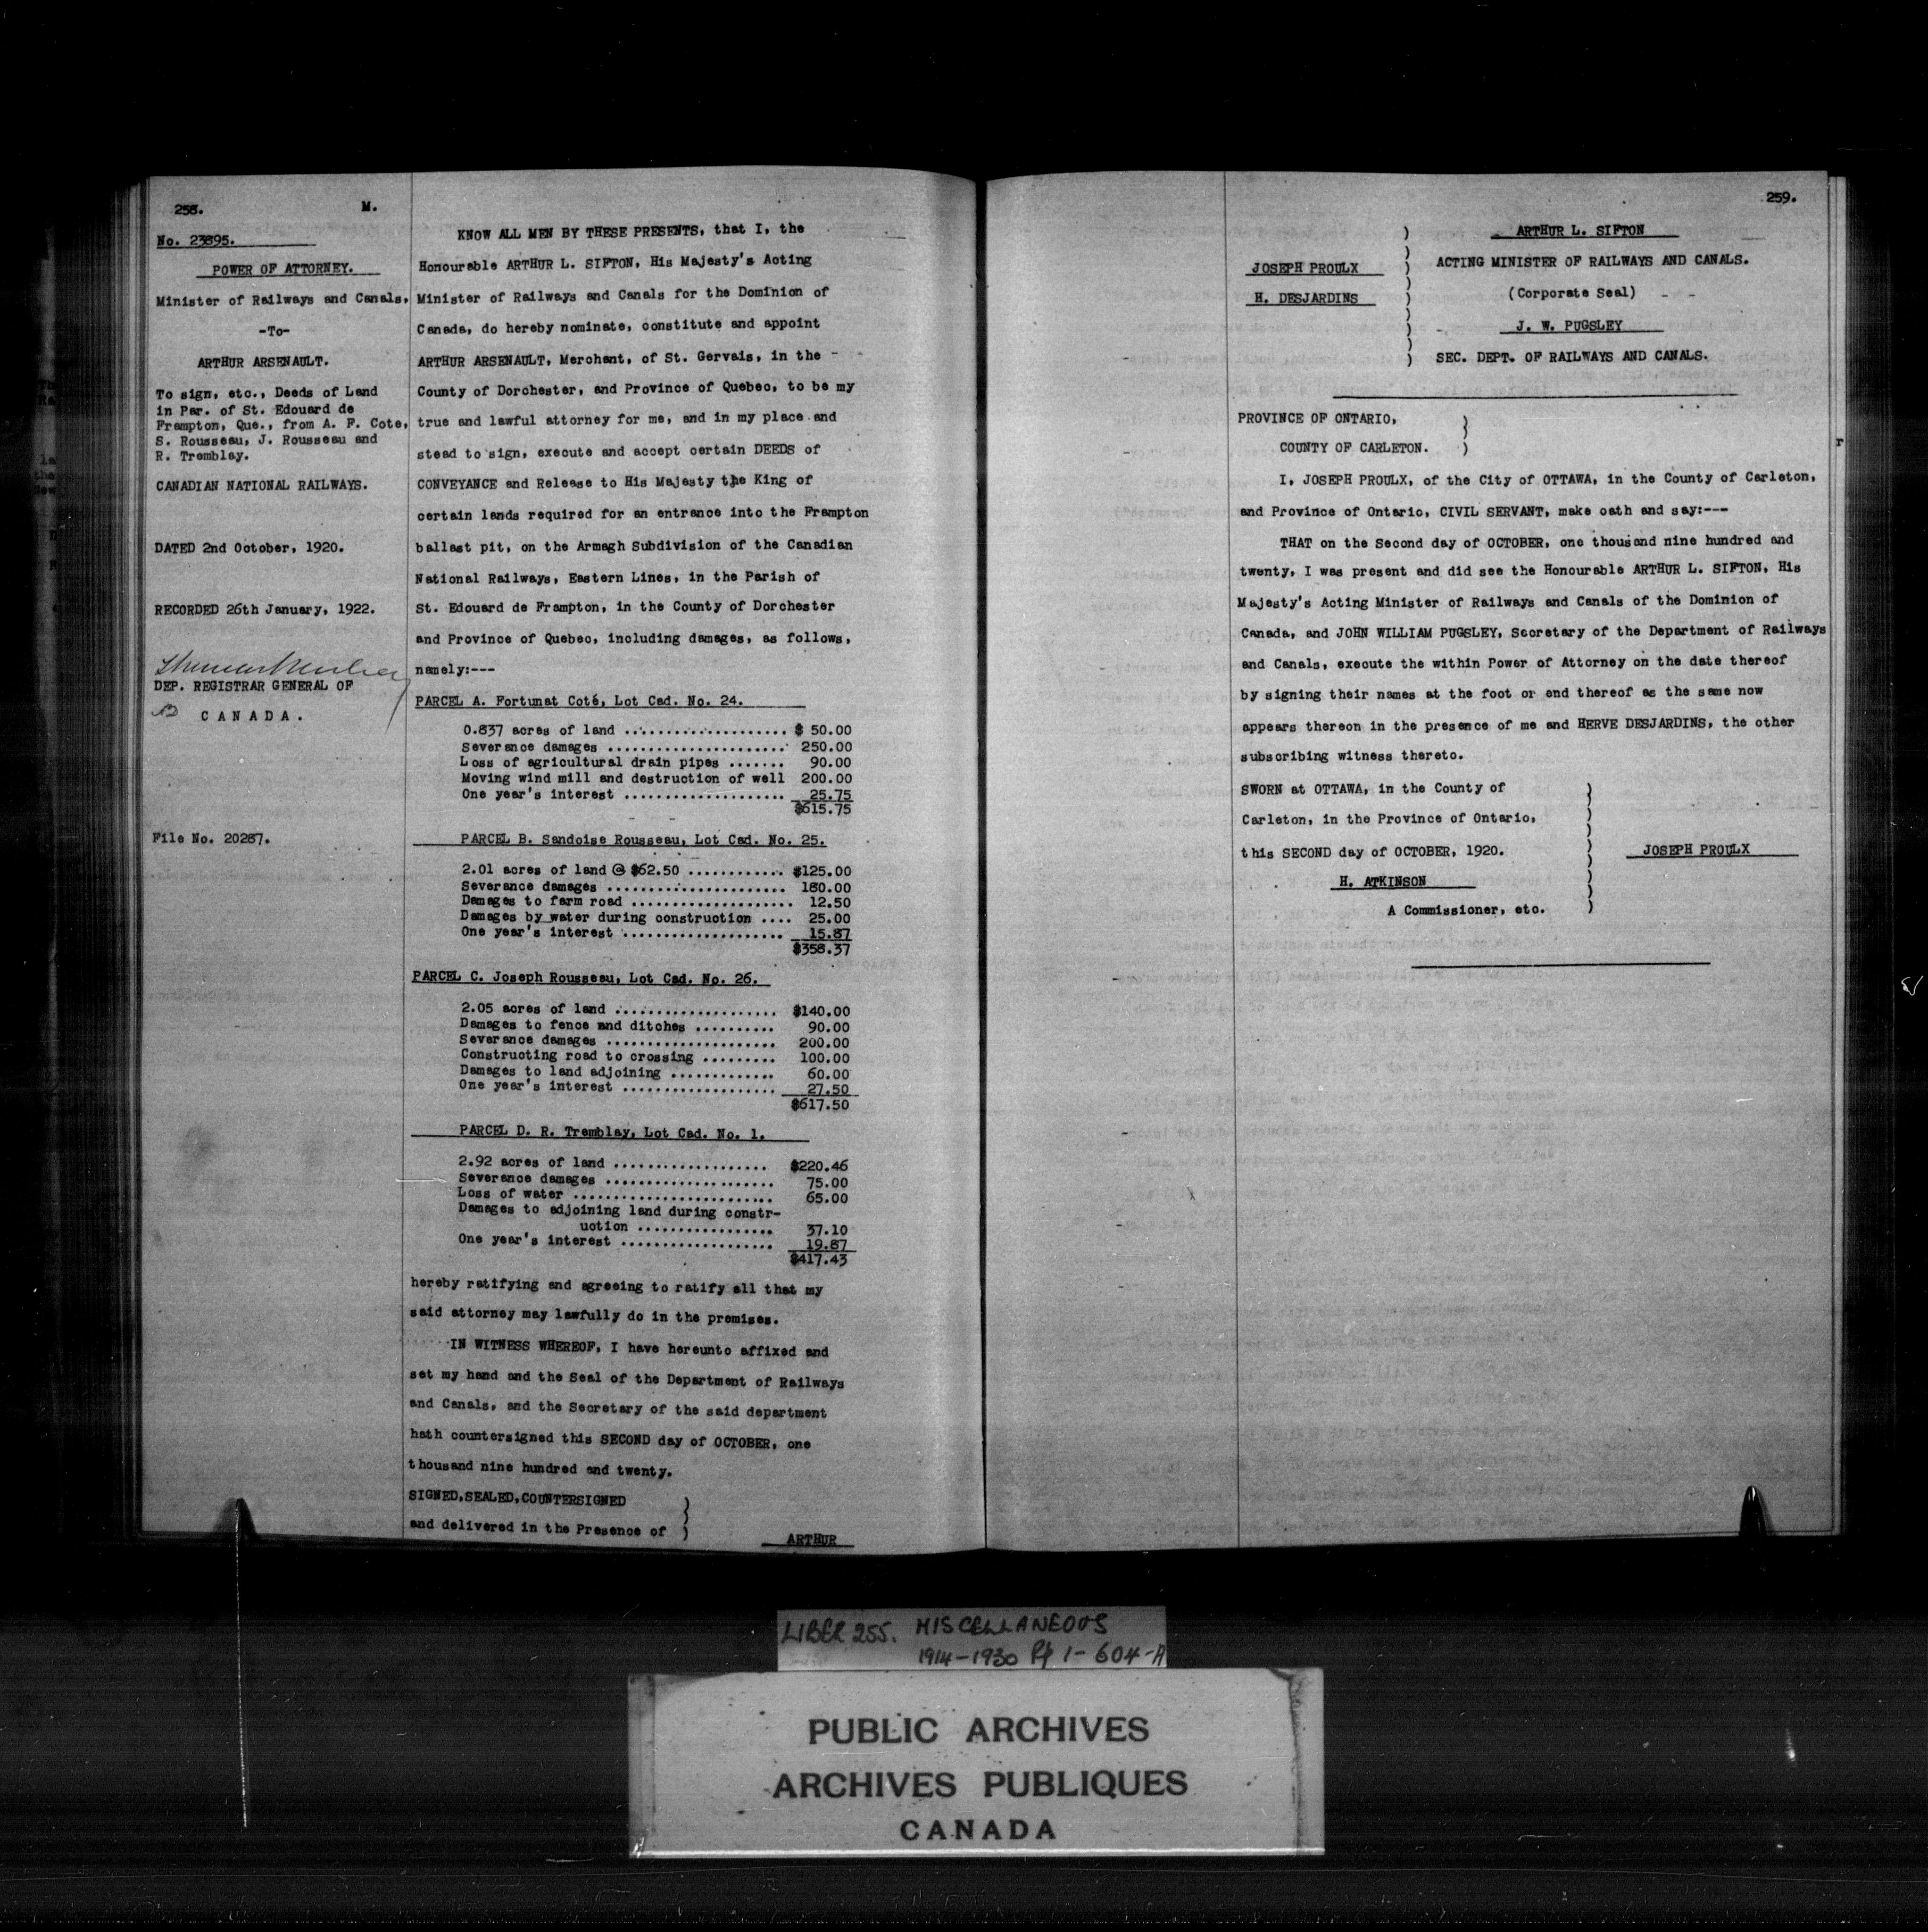 258. M.
No. 23895.
POWER OF ATTORNEY.
Minister of Railways and Canals,
-To-
ARTHUR ARSENAULT.
To sign, etc., Deeds of Land
in Par. of St. Edouard de
Frampton, Que., from A. F. Cote,
S. Rousseau, J. Rousseau and
R. Tremblay.
CANADIAN NATIONAL RAILWAYS.
DATED 2nd October, 1920.
RECORDED 26th January, 1922.
DEP. REGISTRAR GENERAL OF
CANADA.
File No. 20287.
KNOW ALL MEN BY THESE PRESENTS, that I, the
Honourable ARTHUR L. SIFTON, His Majesty's Acting
Minister of Railways and Canals for the Dominion of
Canada, do hereby nominate, constitute and appoint
ARTHUR ARSENAULT, Merchant, of St. Gervais, in the -
County of Dorchester, and Province of Quebec, to be my
true and lawful attorney for me, and in my place and
stead to sign, execute and accept certain DEEDS of
CONVEYANCE and Release to His Majesty the King of
certain lands required for an entrance into the Frampton
ballast pit, on the Armagh Subdivision of the Canadian
National Railways, Eastern Lines, in the Parish of
St. Edouard de Frampton, in the County of Dorchester
and Province of Quebec, including damages, as follows,
namely:---
PARCEL A. Fortunat Coté, Lot Cad. No. 24.
0.837 acres of land .................... $ 50.00
Severance damages ...................... 250.00
Loss of agricultural drain pipes ....... 90.00
Moving wind mill and destruction of well 200.00
One year's interest .................... 25.75
$615.75
PARCEL B. Sandoise Rousseau, Lot Cad. No. 25.
2.01 acres of land @ $62.50 ............ $125.00
Severance damages ...................... 180.00
Damages to farm road .................... 12.50
Damages by water during construction .... 25.00
One year's interest .................... 15.87
$358.37
PARCEL C. Joseph Rousseau, Lot Cad. No. 26.
2.05 acres of land .................... $140.00
Damages to fence and ditches .......... 90.00
Severance damages ..................... 200.00
Constructing road to crossing ......... 100.00
Damages to land adjoining ............. 60.00
One year's interest ................... 27.50
$617.50
PARCEL D. R. Tremblay, Lot Cad. No. 1.
2.92 acres of land ................... $220.46
Severance damages ..................... 75.00
Loss of water ......................... 65.00
Damages to adjoining land during constr-
uction ................. 37.10
One year's interest ................... 19.87
$417.43
hereby ratifying and agreeing to ratify all that my
said attorney may lawfully do in the premises.
IN WITNESS WHEREOF, I have hereunto affixed and
set my hand and the Seal of the Department of Railways
and Canals, and the Secretary of the said department
hath countersigned this SECOND day of OCTOBER, one
thousand nine hundred and twenty.
SIGNED,SEALED,COUNTERSIGNED )
and delivered in the Presence of )
ARTHUR
259.
ARTHUR L. SIFTON
JOSEPH PROULX ) ACTING MINISTER OF RAILWAYS AND CANALS.
H. DESJARDINS ) (Corporate Seal) - -
J. W. PUGSLEY
SEC. DEPT. OF RAILWAYS AND CANALS.
PROVINCE OF ONTARIO, )
COUNTY OF CARLETON. )
I, JOSEPH PROULX, of the City of OTTAWA, in the County of Carleton,
and Province of Ontario, CIVIL SERVANT, make oath and say:---
THAT on the Second day of OCTOBER, one thousand nine hundred and
twenty, I was present and did see the Honourable ARTHUR L. SIFTON, His
Majesty's Acting Minister of Railways and Canals of the Dominion of
Canada, and JOHN WILLIAM PUGSLEY, Secretary of the Department of Railways
and Canals, execute the within Power of Attorney on the date thereof
by signing their names at the foot or end thereof as the same now
appears thereon in the presence of me and HERVE DESJARDINS, the other
subscribing witness thereto.
SWORN at OTTAWA, in the County of )
Carleton, in the Province of Ontario, )
this SECOND day of OCTOBER, 1920. ) JOSEPH PROULX
H. ATKINSON )
A Commissioner, etc. )
LIBER 255. MISCELLANEOUS
1914-1930 Pp 1-604-A
PUBLIC ARCHIVES
ARCHIVES PUBLIQUES
CANADA